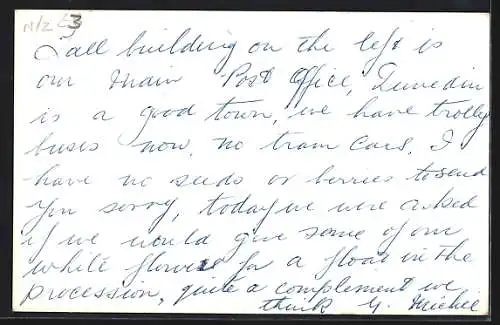 N/Z £3
Tall building on the left is
our Main Post Office, Dunedin
is a good town, we have trolly
buses now, no tram cars. I
have no seeds or berries to send
you sorry, today we were asked
if we would give some of our
white flowers for a float in the
procession, quite a complement we
think G. Michie